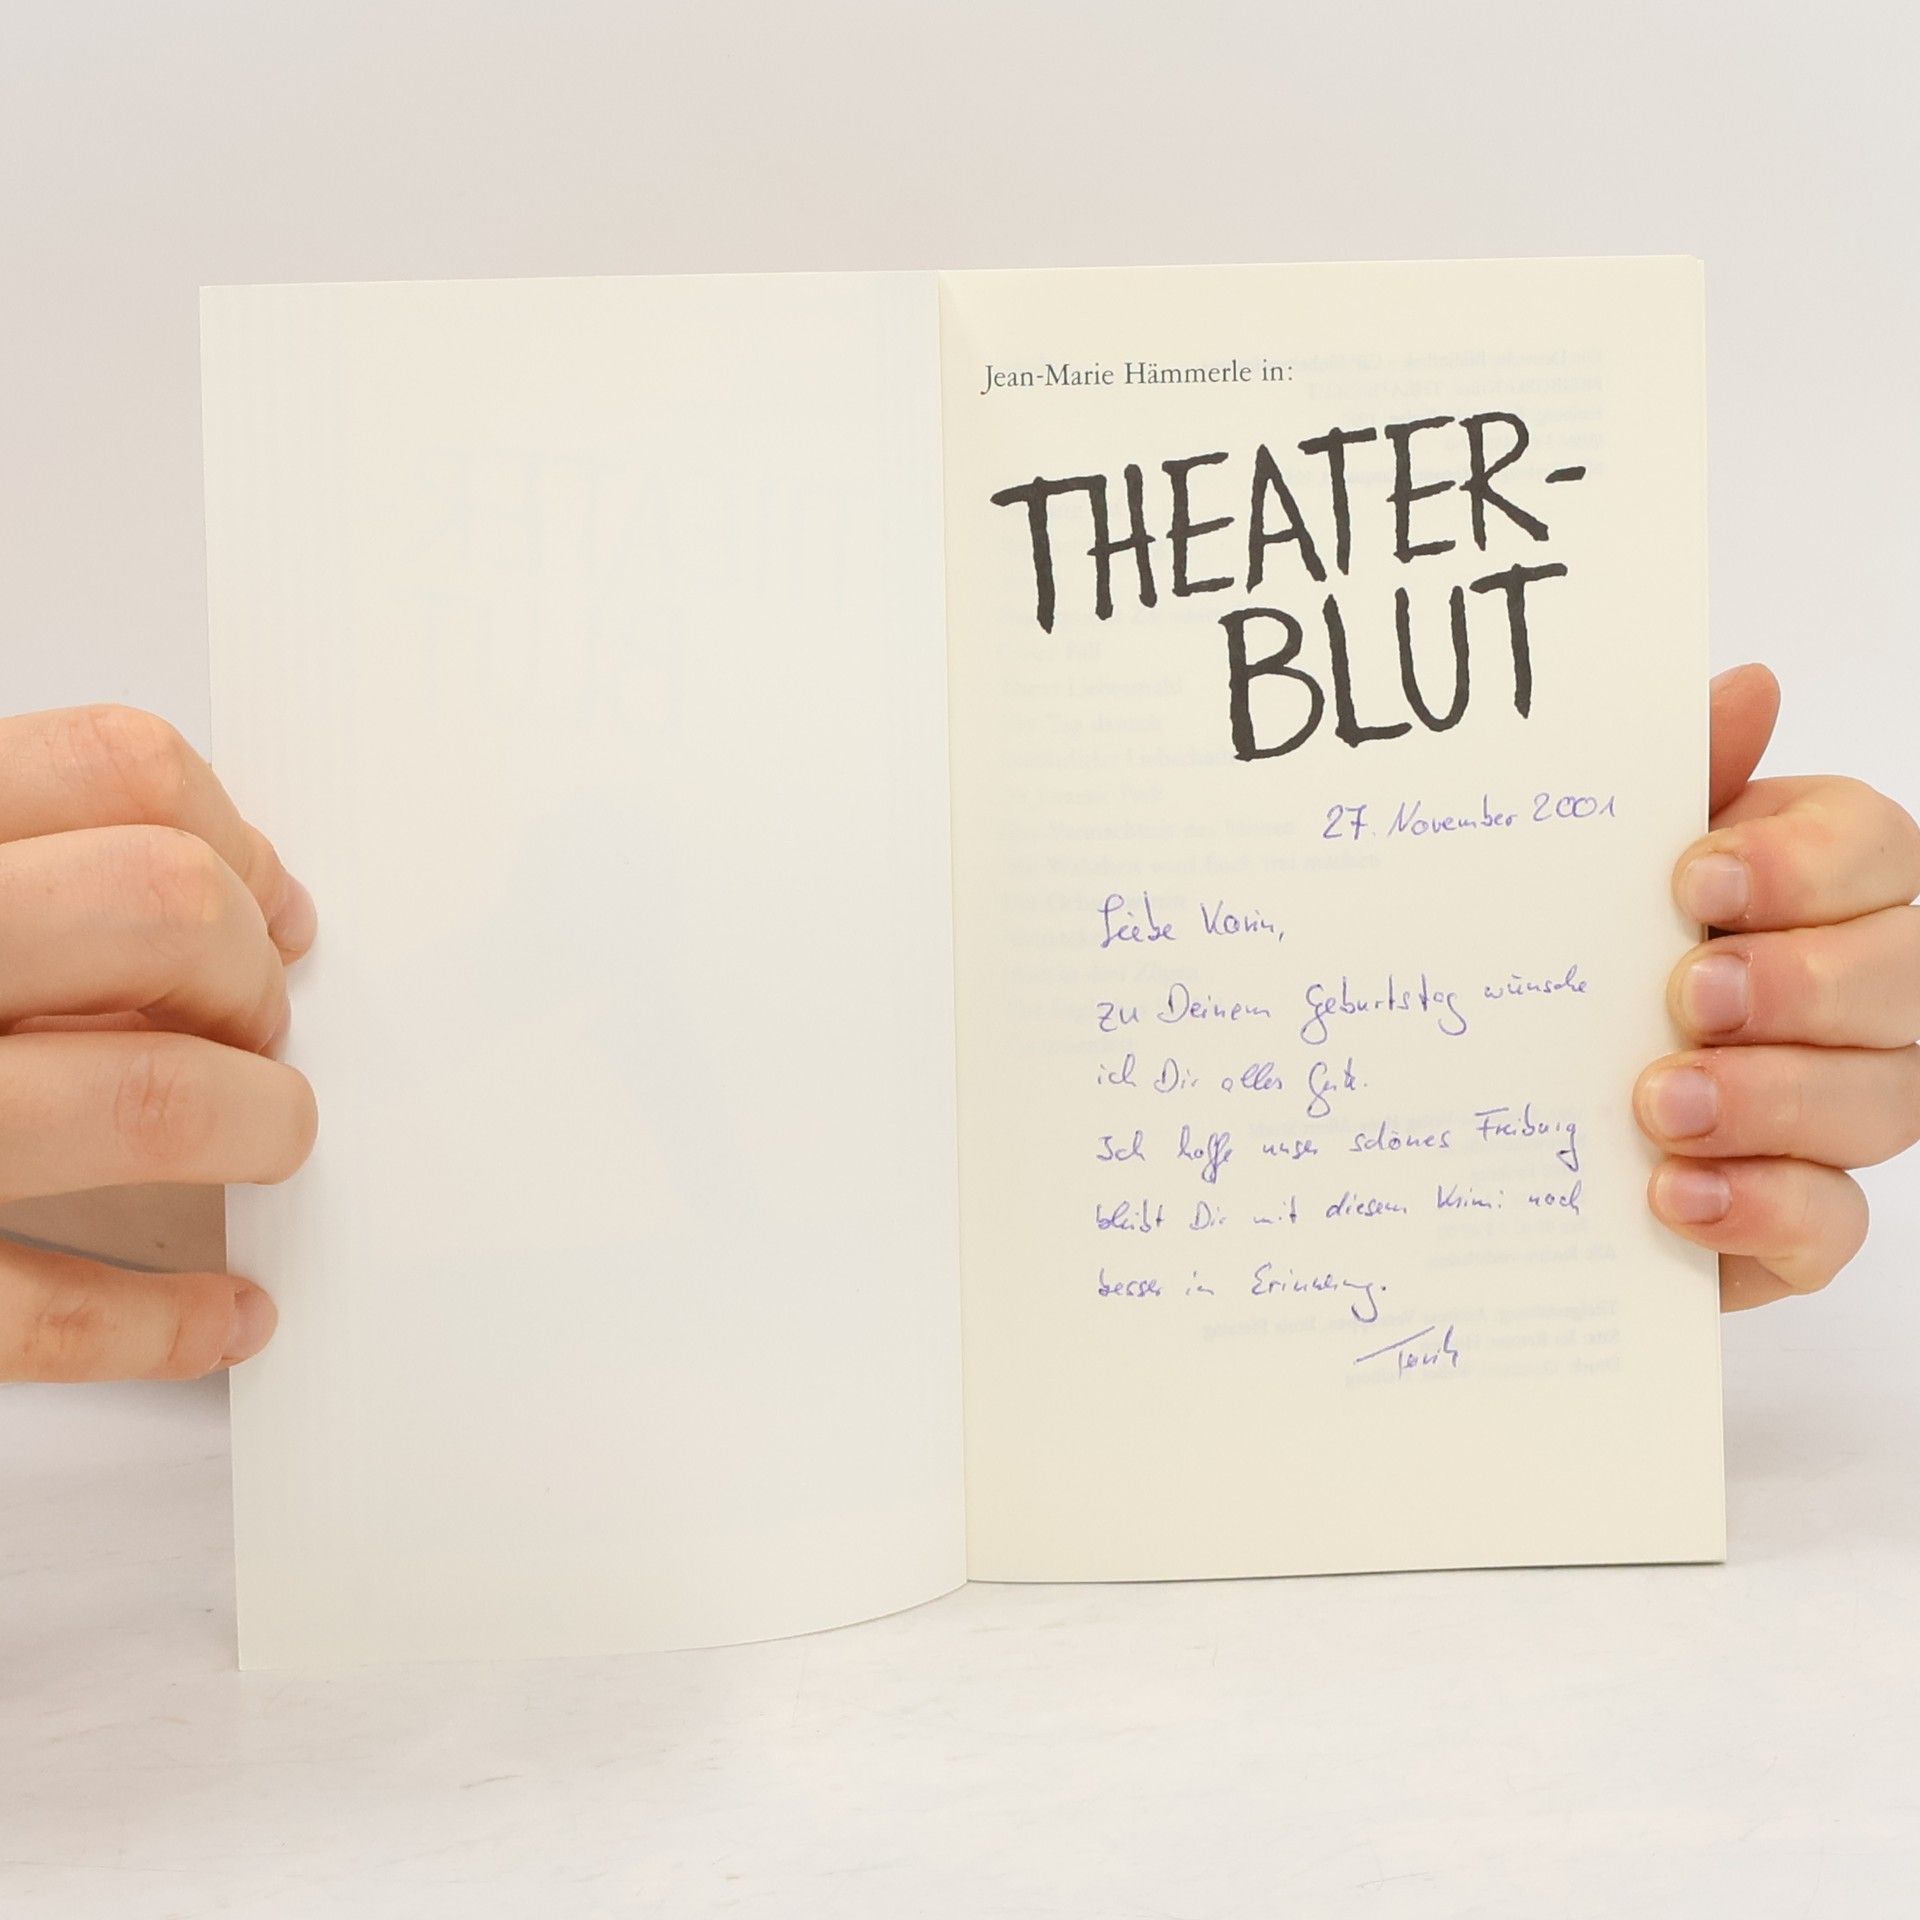 Jean-Marie Hämmerle in:
THEATER-
BLUT
27. November 2001
Liebe Karin,
zu Deinem Geburtstag wünsche
ich Dir alles Gute.
Ich hoffe unser schönes Freiburg
bleibt Dir mit diesem Krimi noch
besser in Erinnerung.